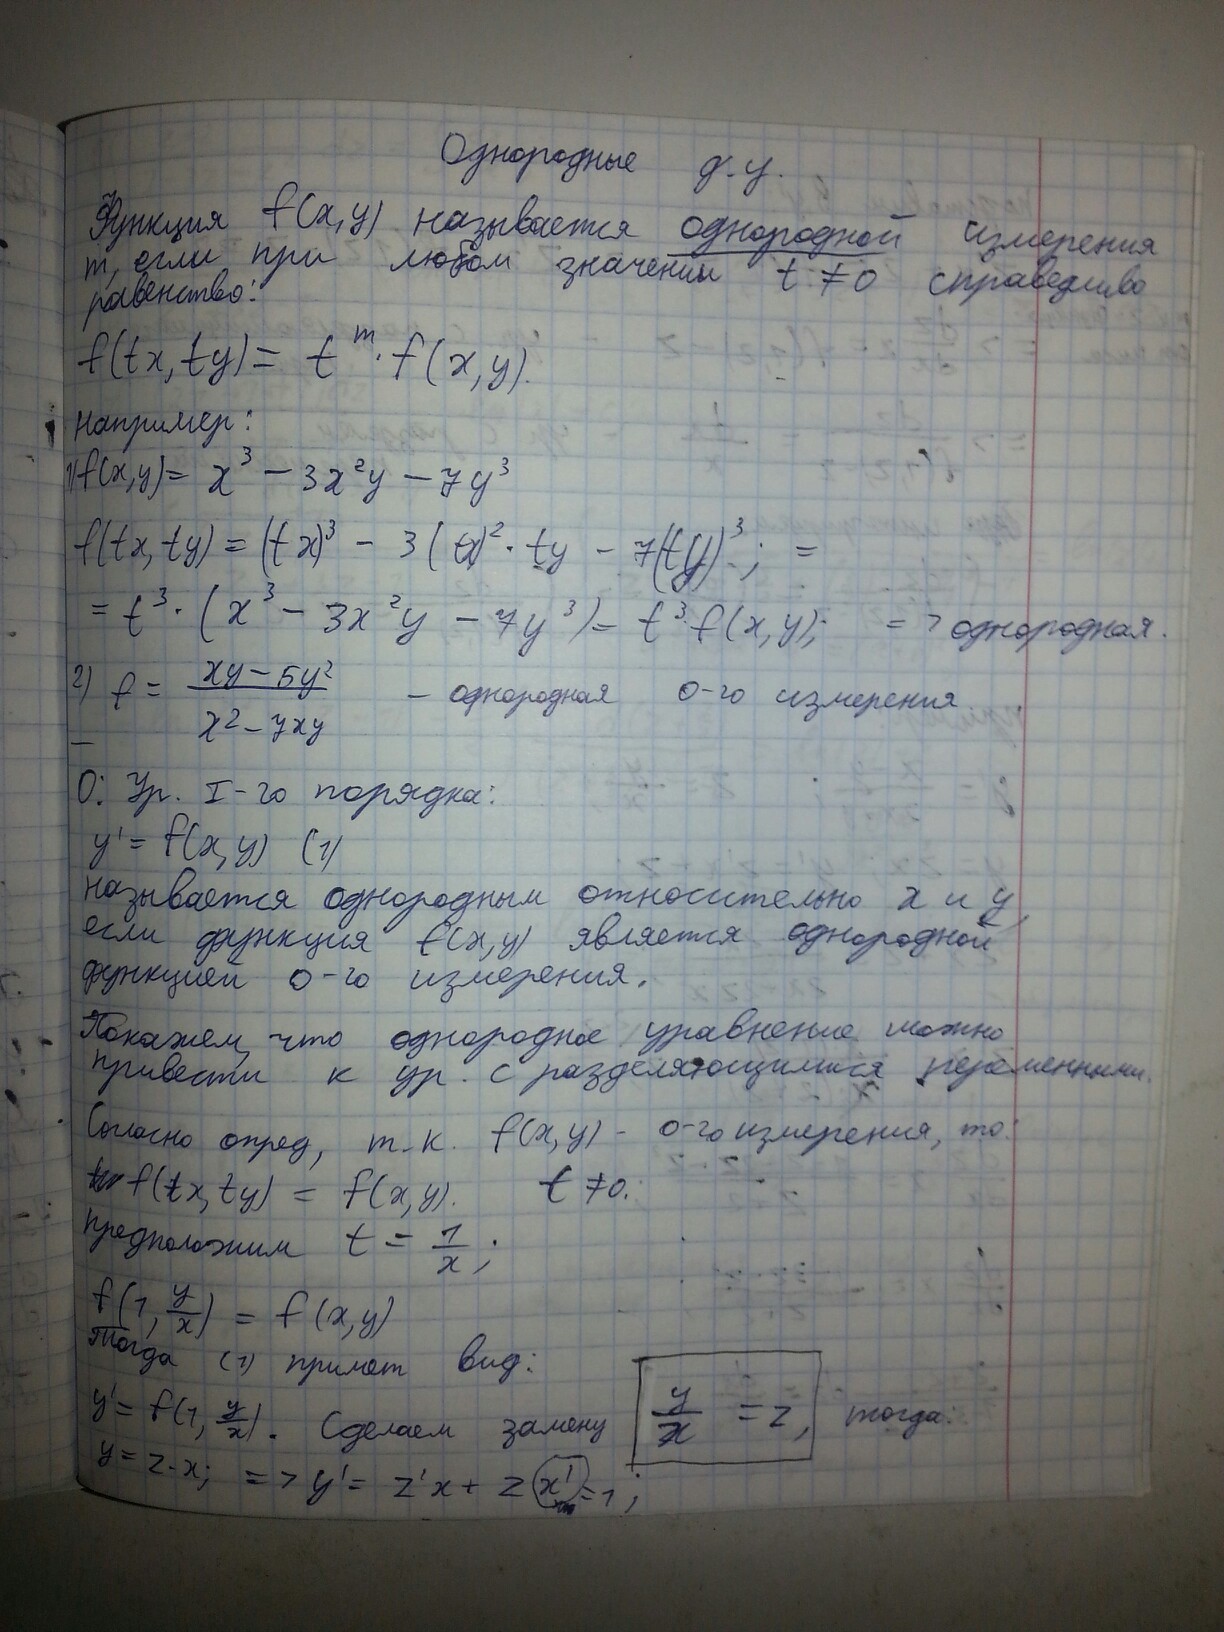 Однородные д.у.
Функция f(x,y) называется однородной измерения
m, если при любом значении t ≠ 0 справедливо
равенство:
f(tx,ty) = t^m · f(x,y).
Например:
1) f(x,y) = x³ − 3x²y − 7y³
f(tx,ty) = (tx)³ − 3(tx)² · ty − 7(ty)³; =
= t³ · (x³ − 3x²y − 7y³) = t³ f(x,y); => однородная.
2) f = (xy − 5y²)/(x² − 7xy) – однородная 0-го измерения
О: Ур. I-го порядка:
y' = f(x,y) (1)
называется однородным относительно x и y,
если функция f(x,y) является однородной
функцией 0-го измерения.
Покажем, что однородное уравнение можно
привести к ур. с разделяющимися переменными.
Согласно опред, т.к. f(x,y) – 0-го измерения, то:
f(tx,ty) = f(x,y). t ≠ 0.
предположим t = 1/x;
f(1, y/x) = f(x,y)
Тогда (1) примет вид:
y' = f(1, y/x). Сделаем замену y/x = z, тогда:
y = z·x; => y' = z'x + z x' = 1;